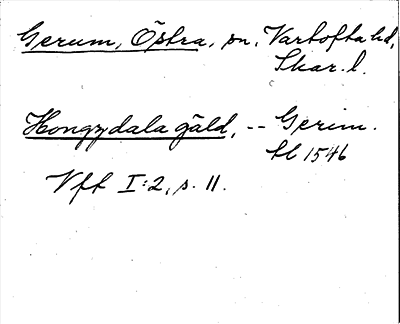 Gerum, Östra, sn, Vartofta hd,
Skar. l.
Hongzdala gäld, -- Gerim.
tl 1546
Vft I:2, s. 11.